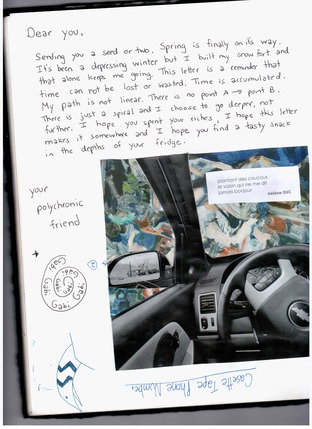 Dear you,
Sending you a seed or two. Spring is finally on its way.
It's been a depressing winter but I built my snow fort and
that alone keeps me going. This letter is a reminder that
time can not be lost or wasted. Time is accumulated.
My path is not linear. There is no point A → point B.
There is just a spiral and I choose to go deeper, not
further. I hope you spent your riches, I hope this letter
makes it somewhere and I hope you find a tasty snack
in the depths of your fridge.
plantant des coucous
le voisin qui ne me dit
jamais bonjour
Hélène DUC
your
polychronic
friend
Gabi
Gabi
Gabi
Gabi
Casette Tape Phone Number